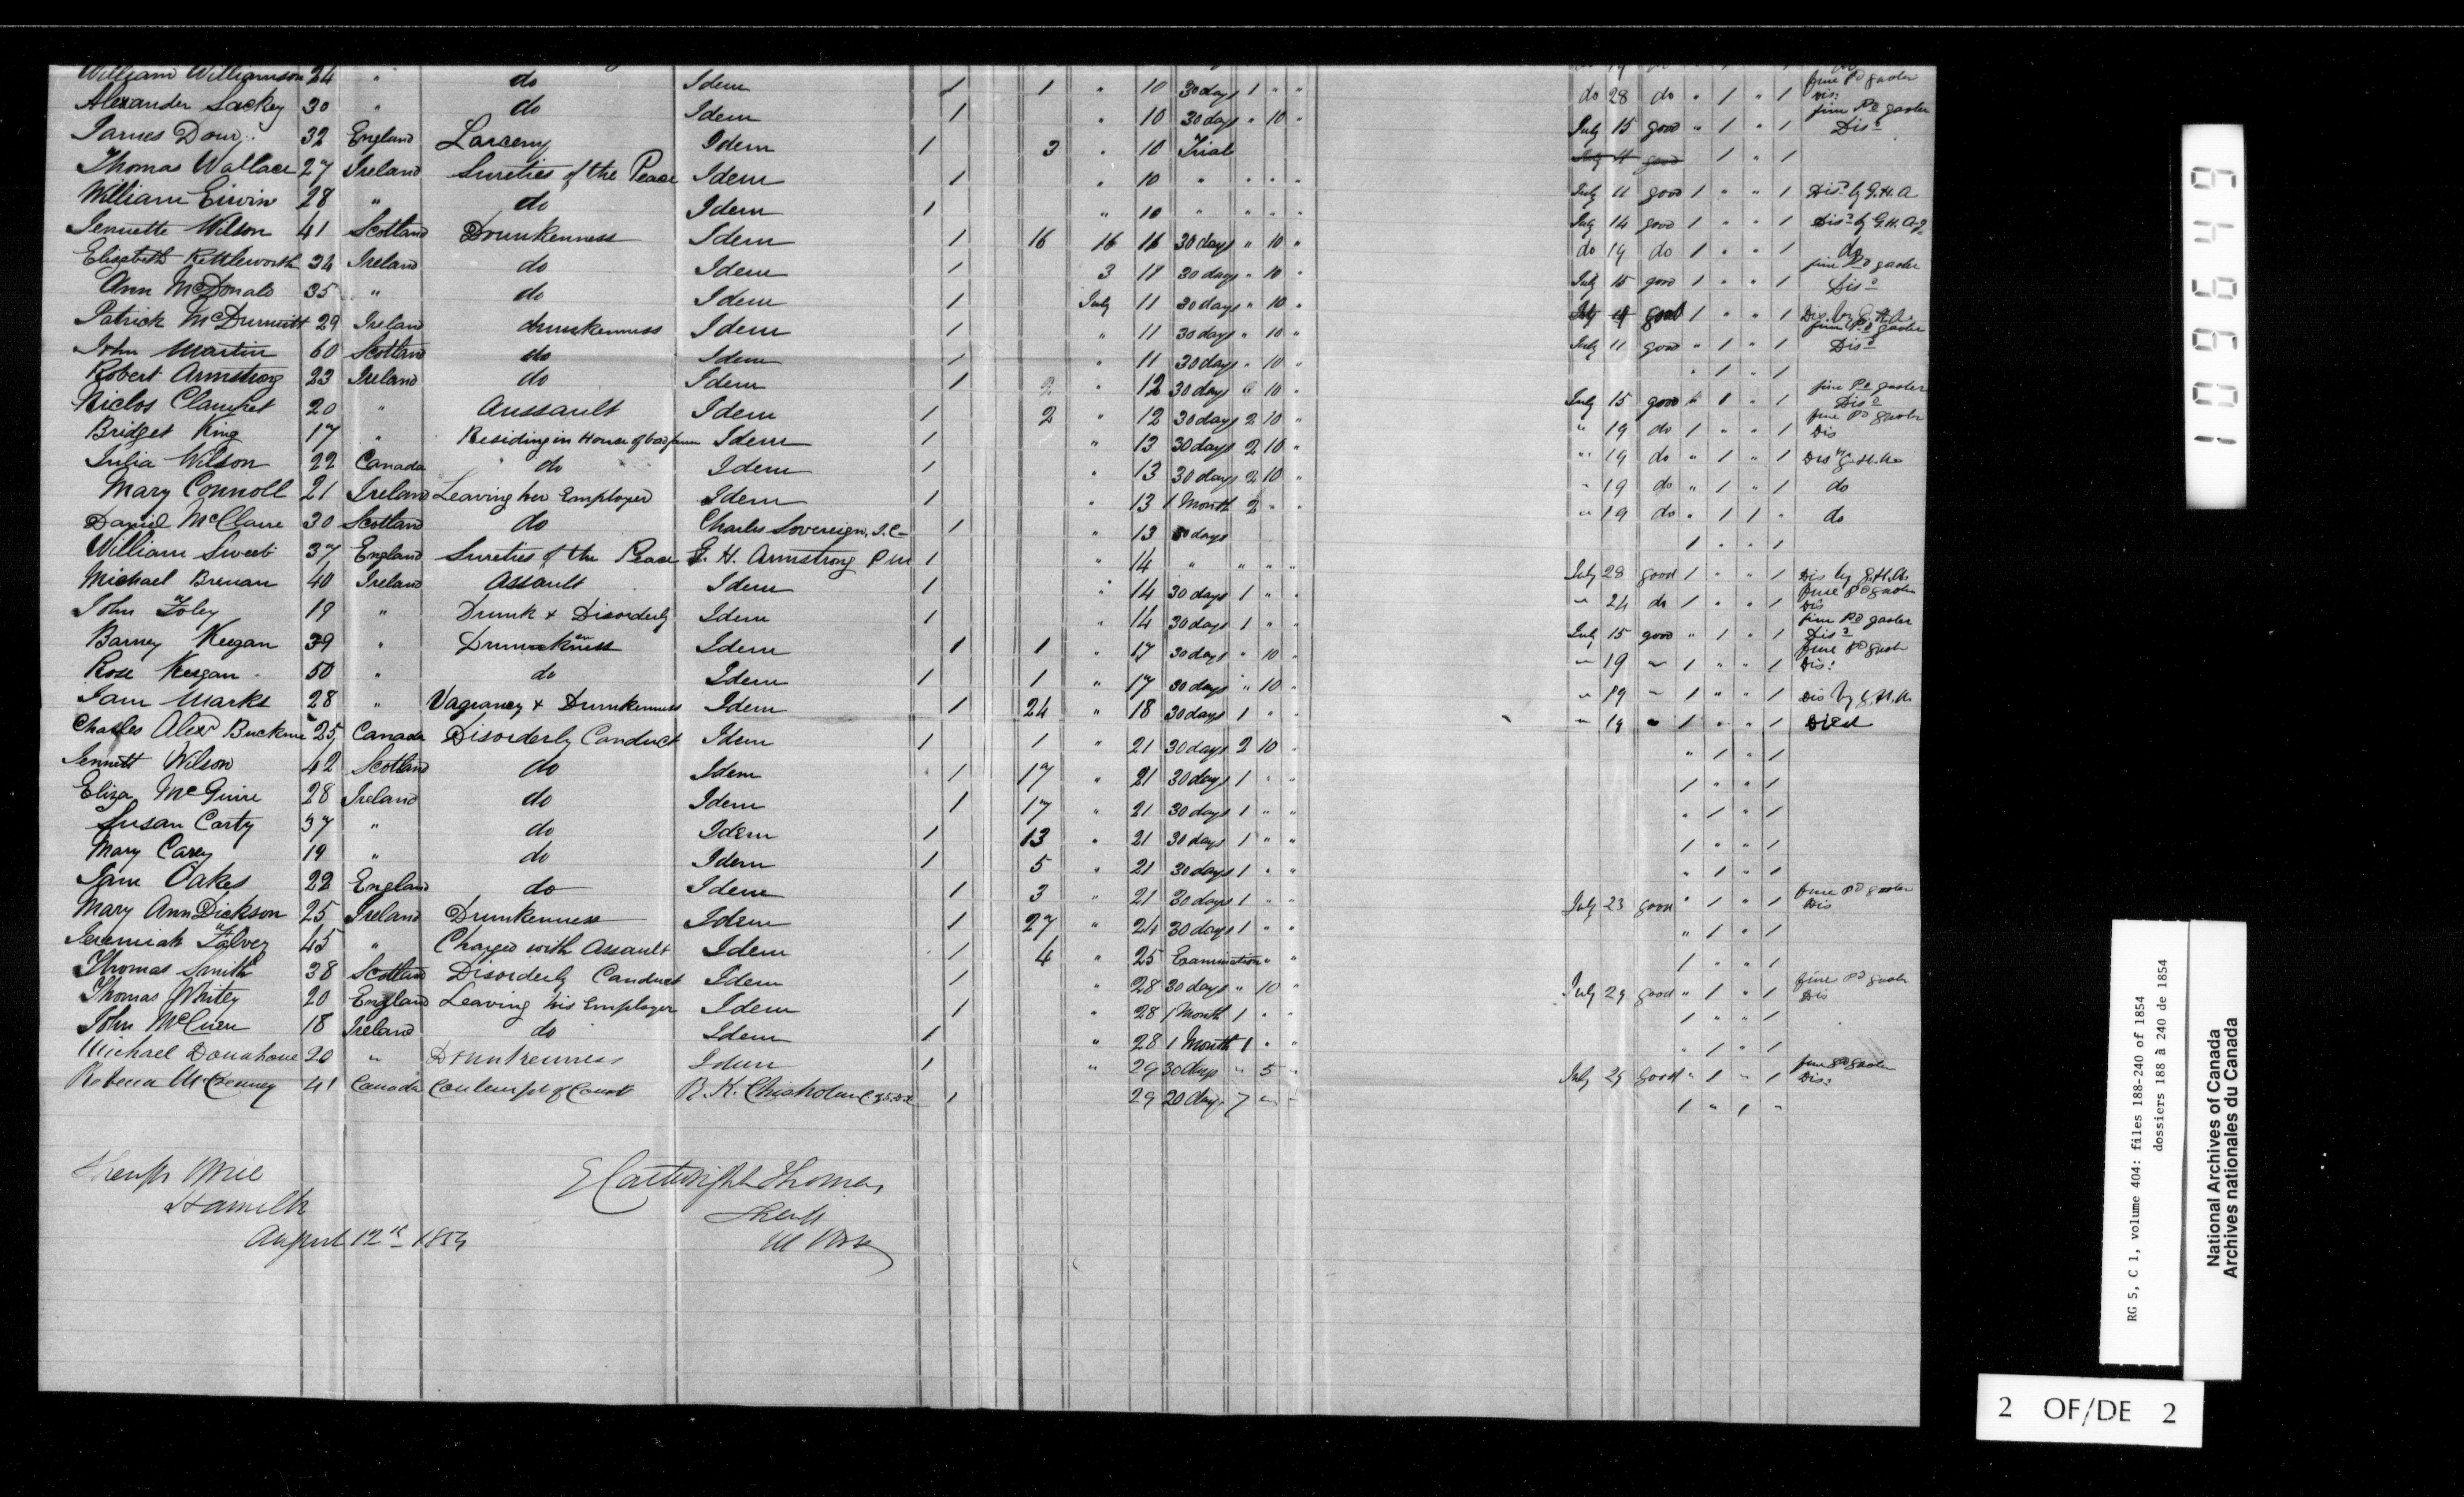 William Williamson 24 " do Idem 1 1 " 10 30 days 1 " " do 28 do " 1 " 1 fine Pd gaoler Dis:
Alexander Lackey 30 " do Idem 1 " 10 30 days " 10 " July 15 good " 1 " 1 fine Pd gaoler Disd
James Dow 32 England Larceny Idem 1 3 " 10 Trial 1 " 1
Thomas Wallace 27 Ireland Sureties of the Peace Idem 1 " 10 " " " " July 11 good 1 " " 1 Disd by G.H.A
William Erwin 28 " do Idem 1 " 10 " " " " July 14 good 1 " " 1 Disd by G.H.A
Jennette Wilson 41 Scotland Drunkenness Idem 1 16 16 11 30 days " 10 " do 19 do 1 " " 1 do
Elizabeth Kettleworth 34 Ireland do Idem 1 3 11 30 days " 10 " July 15 good 1 " " 1 fine Pd gaoler Disd
Ann McDonald 35 " do Idem 1 July 11 30 days " 10 " July good 1 " " 1 Dis. by G.H.A.
Patrick McDurmitt 29 Ireland drunkenness Idem 1 " 11 30 days " 10 " July 11 good " 1 " 1 fine Pd gaoler Disd
John Martin 60 Scotland do Idem 1 " 11 30 days " 10 " " 1 " 1
Robert Armstrong 23 Ireland do Idem 1 2 " 12 30 days 10 " July 15 good " 1 " 1 fine Pd gaoler Disd
Niclos 20 " Aussault Idem 1 2 " 12 30 days 2 10 " " 19 do 1 " " 1 fine Pd gaoler Dis
Bridget King 17 " Residing in House of bad fame Idem 1 " 13 30 days 2 10 " " 19 do " 1 " 1 Dis by G.H.A.
Julia Wilson 22 Canada do Idem 1 " 13 30 days 2 10 " " 19 do " 1 " 1 do
Mary Connoll 21 Ireland Leaving her Employer Idem 1 " 13 1 Month 2 " " " 19 do " 1 1 " do
Daniel McClaire 30 Scotland do Charles Sovereign, J.P. 1 " 13 days 1 " " 1
William Sweet 37 England Sureties of the Peace G. H. Armstrong P M 1 " 14 " " " " July 28 good 1 " " 1 Dis by G.H.A.
Michael Brenan 40 Ireland Assault Idem 1 " 14 30 days 1 " " " 24 do 1 " " 1 fine Pd gaoler Dis
John Foley 19 " Drunk & Disorderly Idem 1 " 14 30 days 1 " " July 15 good " 1 " 1 fine Pd gaoler Disd
Barney Keegan 39 " Drunkenness Idem 1 1 " 17 30 days " 10 " " 19 " 1 " " 1 fine Pd gaoler Dis:
Rose Keegan 50 " do Idem 1 1 " 17 30 days " 10 " " 19 " 1 " " 1 Dis by G.H.A.
Jane Marks 28 " Vagrancy & Drunkenness Idem 1 24 " 18 30 days 1 " " " 19 " 1 " " 1 Died
Charles Alexr 25 Canada Disorderly Conduct Idem 1 1 " 21 30 days 2 10 " " 1 " 1
Jennett Wilson 42 Scotland do Idem 1 17 " 21 30 days 1 " " 1 " " 1
Eliza McGuire 28 Ireland do Idem 1 17 " 21 30 days 1 " " " 1 " 1
Susan Carty 37 " do Idem 1 13 " 21 30 days 1 " " 1 " " 1
Mary Carey 19 " do Idem 1 5 " 21 30 days 1 " " " 1 " 1
Jane Oakes 22 England do Idem 1 3 " 21 30 days 1 " " July 23 good " 1 " 1 fine Pd gaoler Dis
Mary Ann Dickson 25 Ireland Drunkenness Idem 1 27 " 24 30 days 1 " " " 1 " 1
Jeremiah Falvey 45 " Charged with Assault Idem 1 4 " 25 Examination " " 1 " " 1
Thomas Smith 38 Scotland Disorderly Conduct Idem 1 " 28 30 days " 10 " July 29 good " 1 " 1 fine Pd gaoler Dis
Thomas Whitey 20 England Leaving his Employer Idem 1 " 28 1 Month 1 " " 1 " " 1
John McCuen 18 Ireland do Idem 1 " 28 1 Month 1 " " " 1 " 1
Michael Donahoue 20 " Drunkenness Idem 1 " 29 30 days " 5 " July 29 good " 1 " 1 fine Pd gaoler Dis:
Rebecca McCenney 41 Canada Contempt of Court R. K. Chisholm 1 29 20 days 7 " " 1 " 1 "
Sheriffs Office
Hamilton
August 12th 1854
E Cartwright Thomas
Sheriff
1096649
RG 5, C 1, volume 404: files 188-240 of 1854
dossiers 188 à 240 de 1854
National Archives of Canada
Archives nationales du Canada
2 OF/DE 2